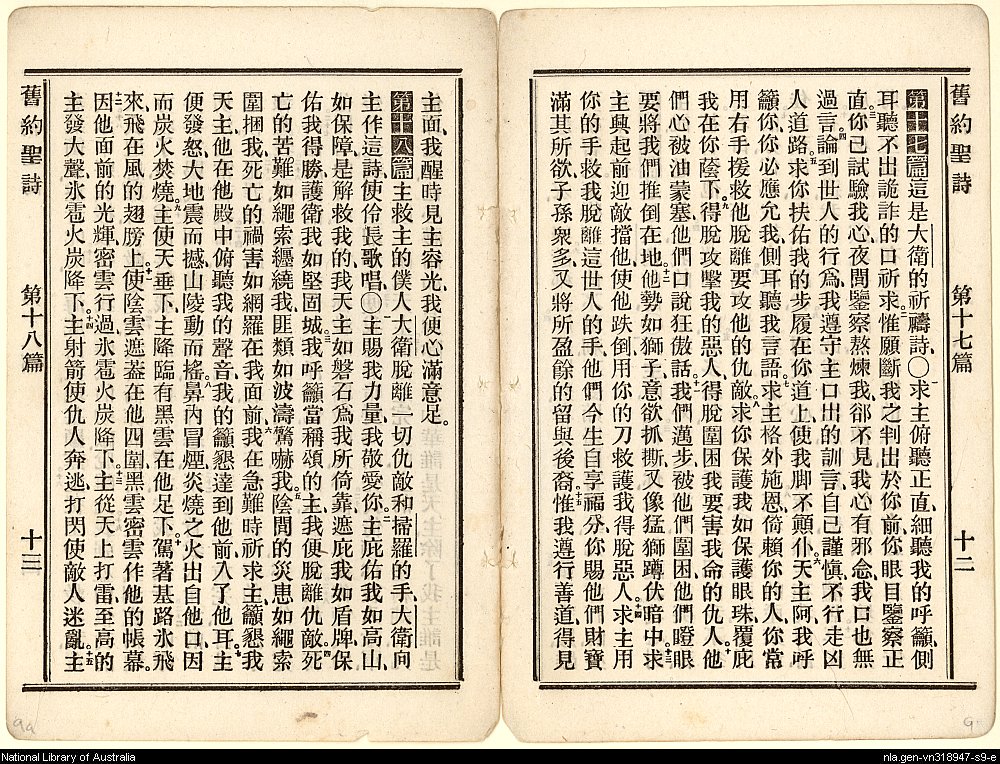 舊約聖詩 第十七篇 十二
第十七篇這是大衛的祈禱詩、〇一求主俯聽正直、細聽我的呼籲、側
耳聽不出詭詐的口祈求、二惟願斷我之判出於你前、你眼目鑒察正
直、三你已試驗我心、夜間鑒察熬煉我、卻不見我心有邪念、我口也無
過言、四論到世人的行爲、我遵守主口出的訓言、自己謹愼、不行走凶
人道路、五求你扶佑我的步履在你道上、使我脚不顚仆。六天主阿、我呼
籲你、你必應允我、側耳聽我言語、七求主格外施恩、倚賴你的人、你常
用右手援救他、脫離要攻他的仇敵、八求你保護我如保護眼珠、覆庇
我在你蔭下、九得脫攻擊我的惡人、得脫圍困我要害我命的仇人。十他
們心被油蒙塞、他們口說狂傲話、十一我們邁步、被他們圍困、他們瞪眼
要將我們推倒在地、十二他勢如獅子、意欲抓撕、又像猛獅蹲伏暗中、十三求
主興起、前迎敵擋他、使他跌倒、用你的刀救護我得脫惡人、十四求主用
你的手救我脫離這世人的手、他們今生自享福分、你賜他們財寶
滿其所欲、子孫衆多、又將所盈餘的留與後裔、十五惟我遵行善道、得見
主面、我醒時見主容光、我便心滿意足。
第十八篇主救主的僕人大衛脫離一切仇敵和掃羅的手、大衛向
主作這詩、使伶長歌唱、〇一主賜我力量、我敬愛你、二主庇佑我如高山、
如保障、是解救我的、我天主如磐石、爲我所倚靠、遮庇我如盾牌、保
佑我得勝、護衛我如堅固城、三我呼籲當稱頌的主、我便脫離仇敵、四死
亡的苦難如繩索纏繞我、匪類如波濤驚嚇我、五陰間的災患如繩索
圍捆我、死亡的禍害如網羅在我面前、六我在急難時祈求主、籲懇我
天主、他在他殿中俯聽我的聲音、我的籲懇達到他前、入了他耳。七主
便發怒、大地震而撼、山陵動而搖、八鼻內冒煙、炎燒之火出自他口、因
而炭火焚燒、九主使天垂下、主降臨有黑雲在他足下、十駕著基路氷飛
來、飛在風的翅膀上、十一使陰雲遮蓋在他四圍、黑雲密雲作他的帳幕。
十二因他面前的光輝、密雲行過、氷雹火炭降下、十三主從天上打雷、至高的
主發大聲、氷雹火炭降下、十四主射箭使仇人奔逃、打閃使敵人迷亂、十五主
舊約聖詩 第十八篇 十三
9a
9
National Library of Australia
nla.gen-vn318947-s9-e